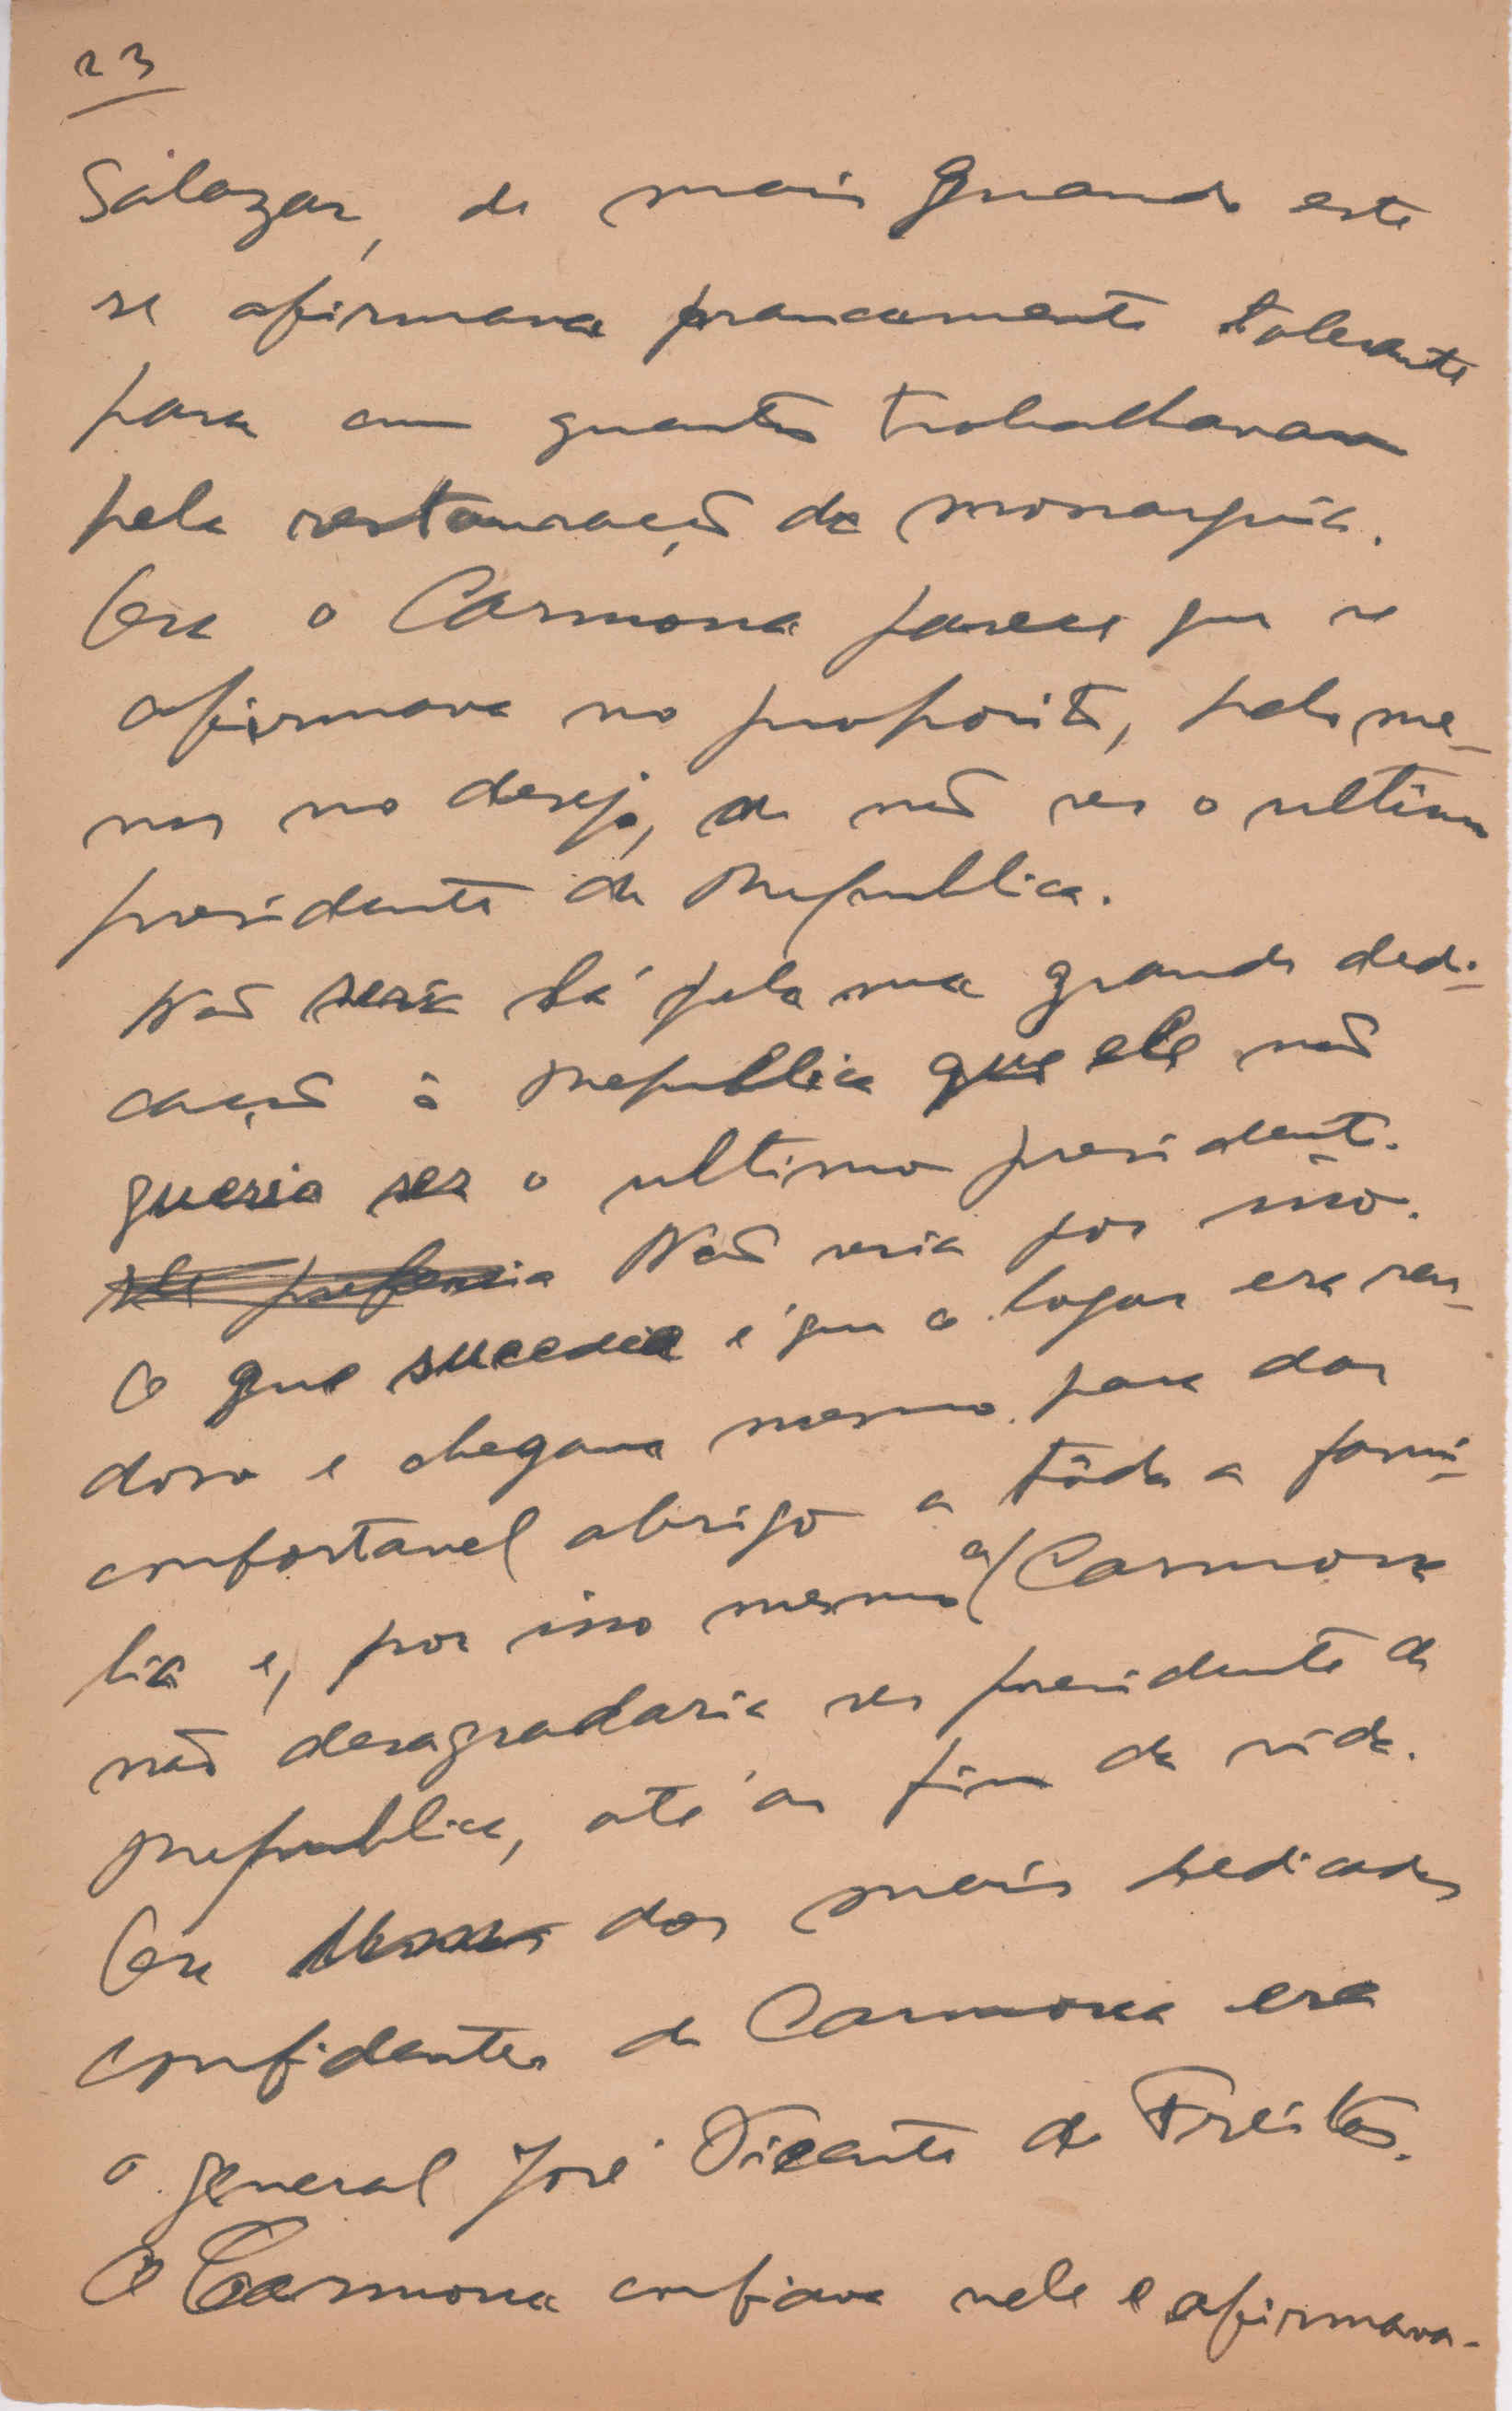 23
Salazar, de mais quando este
se afirmava francamente tolerante
para com quantos trabalhavam
pela restauração da monarquia.
Ora o Carmona parece que se
afirmava no proposito, pelo me-
nos no desejo, de não ser o ultimo
presidente da Republica.
Não seria lá pela sua grande dedi-
cação à Republica que ele não
queria ser o ultimo presidente.
Não seria por isso.
O que sucedia é que o logar era ren-
doso e chegava mesmo para dar
confortavel abrigo a tôda a fami-
lia e, por isso mesmo a Carmona
não desagradaria ser presidente da
Republica, até ao fim da vida.
Ora dos mais dedicados
confidentes de Carmona era
o general José Vicente de Freitas.
O Carmona confiava nele e afirmava-